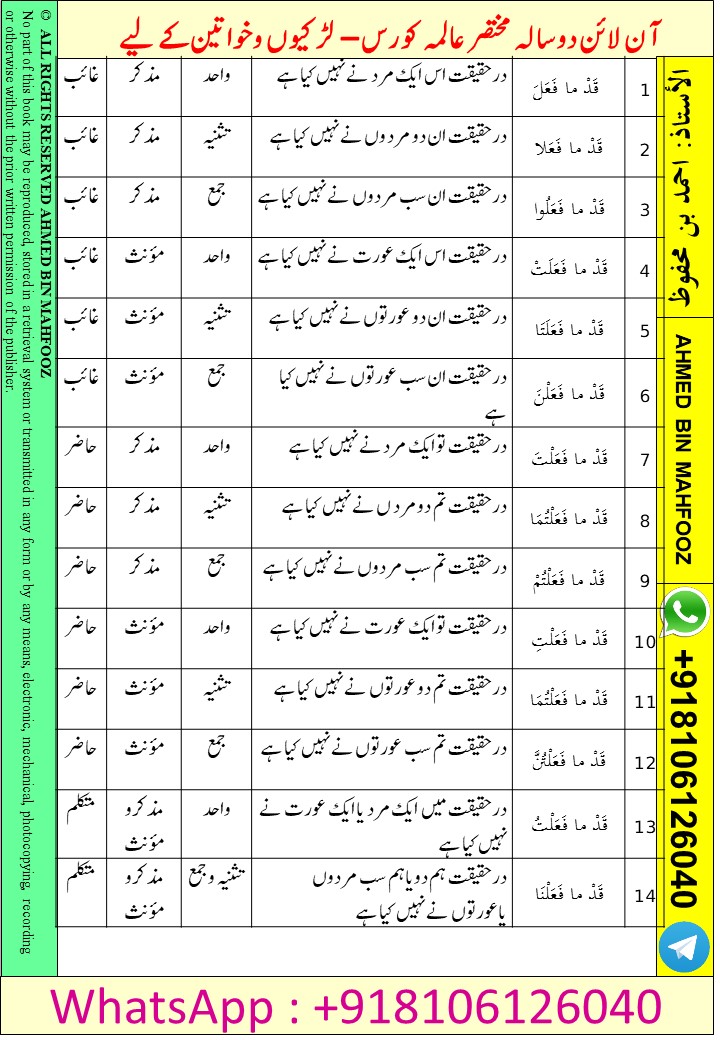 آن لائن دو سالہ مختصر عالمہ کورس – لڑکیوں و خواتین کے لیے
1 قَدْ ما فَعَلَ در حقیقت اس ایک مرد نے نہیں کیا ہے واحد مذکر غائب
2 قَدْ ما فَعَلا در حقیقت ان دو مردوں نے نہیں کیا ہے تثنیہ مذکر غائب
3 قَدْ ما فَعَلُوا در حقیقت ان سب مردوں نے نہیں کیا ہے جمع مذکر غائب
4 قَدْ ما فَعَلَتْ در حقیقت اس ایک عورت نے نہیں کیا ہے واحد مؤنث غائب
5 قَدْ ما فَعَلَتَا در حقیقت ان دو عورتوں نے نہیں کیا ہے تثنیہ مؤنث غائب
6 قَدْ ما فَعَلْنَ در حقیقت ان سب عورتوں نے نہیں کیا جمع مؤنث غائب
ہے
7 قَدْ ما فَعَلْتَ در حقیقت تو ایک مرد نے نہیں کیا ہے واحد مذکر حاضر
8 قَدْ ما فَعَلْتُمَا در حقیقت تم دو مرد ں نے نہیں کیا ہے تثنیہ مذکر حاضر
9 قَدْ ما فَعَلْتُمْ در حقیقت تم سب مردوں نے نہیں کیا ہے جمع مذکر حاضر
10 قَدْ ما فَعَلْتِ در حقیقت تو ایک عورت نے نہیں کیا ہے واحد مؤنث حاضر
11 قَدْ ما فَعَلْتُمَا در حقیقت تم دو عورتوں نے نہیں کیا ہے تثنیہ مؤنث حاضر
12 قَدْ ما فَعَلْتُنَّ در حقیقت تم سب عورتوں نے نہیں کیا ہے جمع مؤنث حاضر
13 قَدْ ما فَعَلْتُ در حقیقت میں ایک مرد یا ایک عورت نے واحد مذکر و متکلم
نہیں کیا ہے مؤنث
14 قَدْ ما فَعَلْنَا در حقیقت ہم دو یا ہم سب مردوں تثنیہ و جمع مذکر و متکلم
یا عورتوں نے نہیں کیا ہے مؤنث
الأستاذ: احمد بن محفوظ
AHMED BIN MAHFOOZ
+918106126040
© ALL RIGHTS RESERVED AHMED BIN MAHFOOZ
No part of this book may be reproduced, stored in a retrieval system or transmitted in any form or by any means, electronic, mechanical, photocopying, recording
or otherwise without the prior written permission of the publisher.
WhatsApp : +918106126040